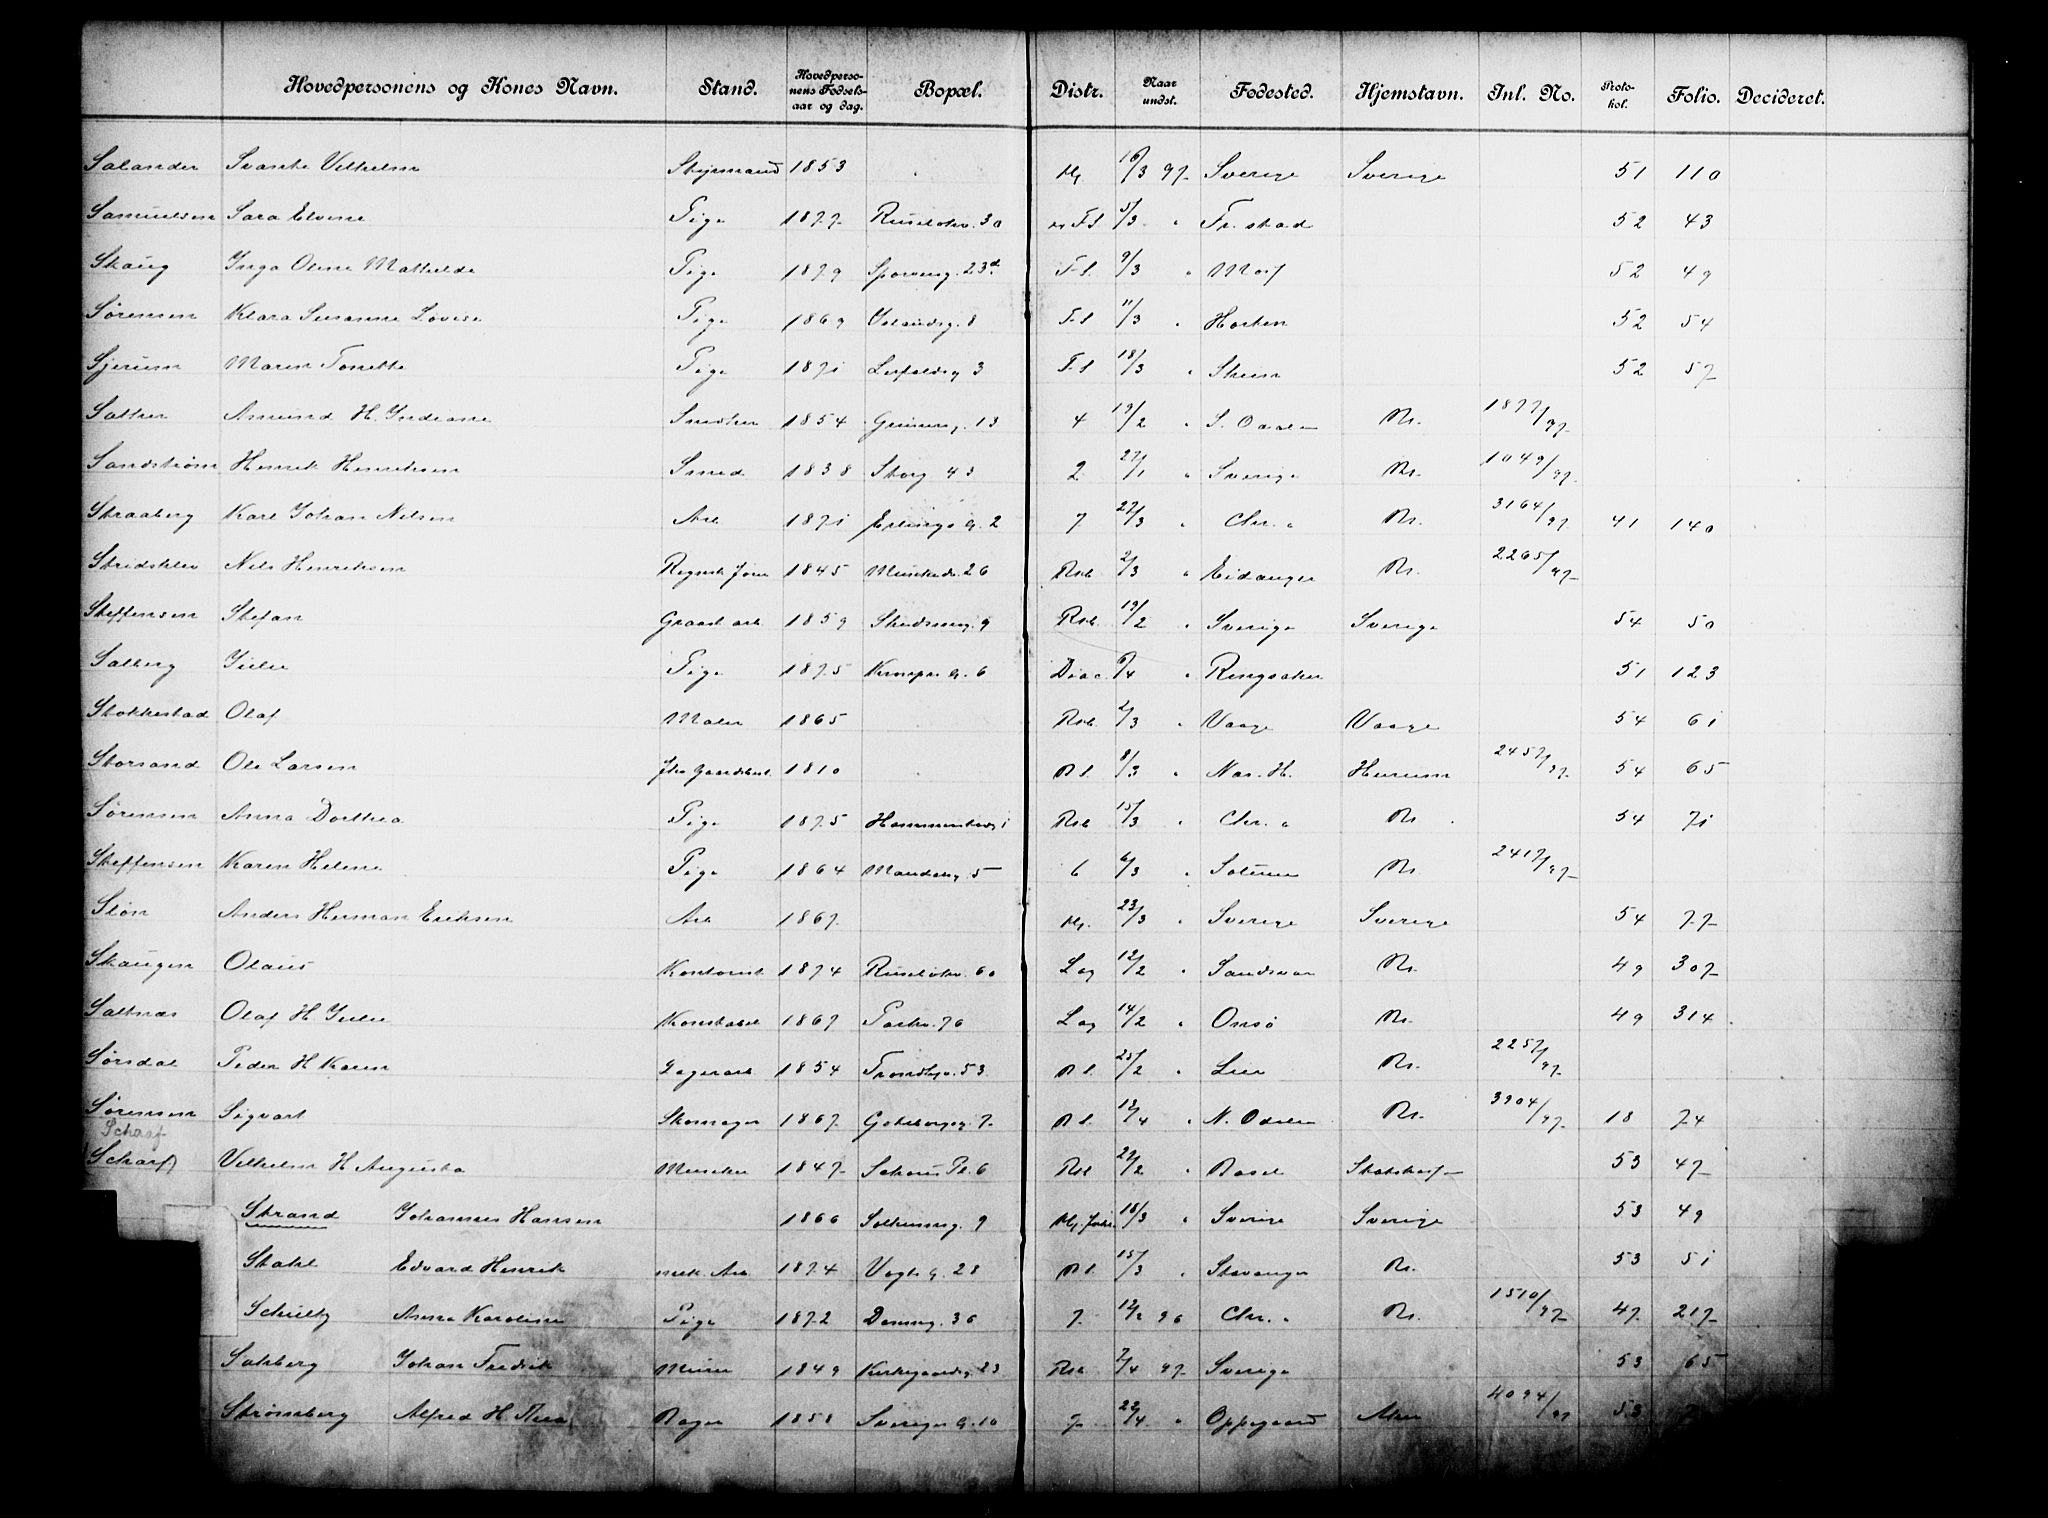 Hovedpersonens og Kones Navn. Stand. Hovedperso-nens Fødsels-aar og dag. Bopæl. Distr. Naar undst. Fødested. Hjemstavn. Inl. No. Proto-kol. Folio. Decideret.
Salander Svante Vilhelm Styrmand 1853 16/3 97 Sverige Sverige 51 110
Samuelsen Sara Elvine Pige 1877 Ruseløkv. 30 5/3 " Fr. stad 52 43
Skaug Inga Oline Mathilde Pige 1879 Sporveisg. 23 F.S. 9/3 " Moss 52 49
Sørensen Klara Susanne Lovise Pige 1869 Uelandsg. 8 F.S. 11/3 " Horten 52 54
Maren Tonette Pige 1871 3 F.S. 18/3 " 52 57
Sæther Amund H. Indiane Snedker 1854 Grünerg. 13 4 19/2 " S. Odalen Nr. 1877/97
Sandstrøm Henrik Henriksen Smed 1838 Storg 43 2 27/1 " Sverige Nr. 1049/97
Straaberg Karl Johan Nilsen Arb 1871 Erlings G. 2 7 27/3 " Chr. a Nr. 3164/97 41 140
Stridsklev Nils Henriksen 1845 26 Rsh. 2/3 " Eidanger Nr. 2265/97
Steffensen Stefan Graast. arb. 1859 9 Rsh. 19/2 " Sverige Sverige 54 50
Salberg Julie Pige 1875 6 Diac. 6/4 " Ringsaker 51 123
Stokkestad Olaf Maler 1865 Rsh. 2/3 " Vaage Vaage 54 61
Storsand Ole Larsen 1810 8/3 " Nær. H. Hurum 2457/97 54 65
Sørensen Anna Dorthea Pige 1875 Hammersborg 1 Rsh 15/3 " Chr. a Nr. 54 71
Steffensen Karen Helene Pige 1864 Maridalsg. 5 6 6/3 " Soleuer Nr. 2417/97
Støn Anders Herman Eriksen Arb 1867 23/3 " Sverige Sverige 54 77
Skaugen Olaus Kontorist 1874 Ruseløkv. 60 Lag 12/2 " Sandsvær Nr. 49 307
Saltnæs Olaf H Julie Konstabel 1867 Parkv. 76 Lag 14/2 " Onsø Nr. 49 314
Sørsdal Peder H Karen Lagerarb 1854 Trondhjv. 53 25/2 " Lier Nr. 2257/97
Sørensen Sigvart Skomager 1867 Gøteborgg. 7 13/4 " N. Odalen Nr. 3904/97 18 74
Schaaf
(Scharf) Vilhelm H Augusta Musiker 1847 Schous Pl. 6 Rsh 27/2 " Basel 53 47
Strand Johannes Hansen 1866 9 18/3 " Sverige Sverige 53 49
Stahl Edvard Henrik mek. Arb. 1874 Vogts G. 28 15/3 " Stavanger Nr. 53 51
Anna Karoline Pige 1872 36 7 12/2 96 Chr. a Nr. 1510/97 47 217
Salberg Johan Fredrik Murer 1849 Kirkegaardsg. 23 Rsh. 7/4 97 Sverige 53 65
Strømberg Alfred H Thea Bager 1858 Sveriges G. 10 7 22/4 " Oppegaard Aker 4094/97 53